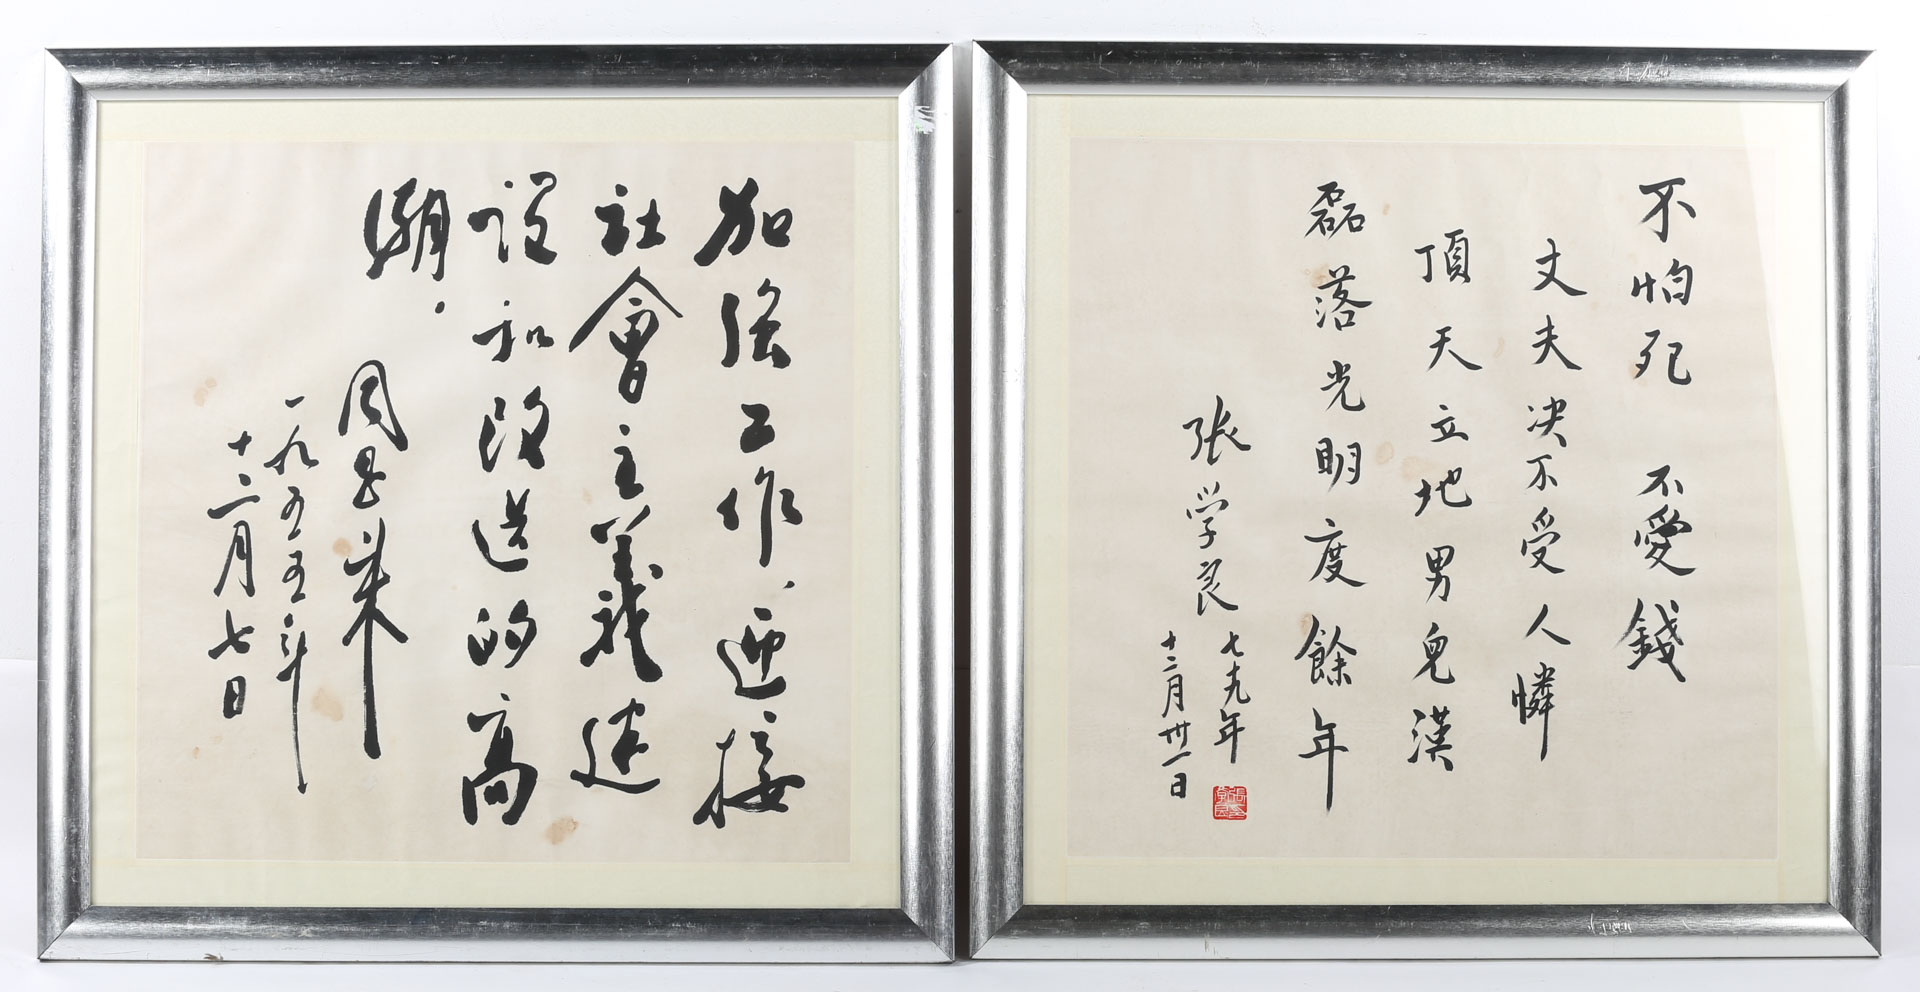 加强工作、迎接
社會主義建
設和改造的高
潮．
周恩来
一九五五年
十二月七日
不怕死 不愛錢
丈夫决不受人憐
頂天立地男兒漢
磊落光明度餘年
張学良
七九年
十二月卅一日